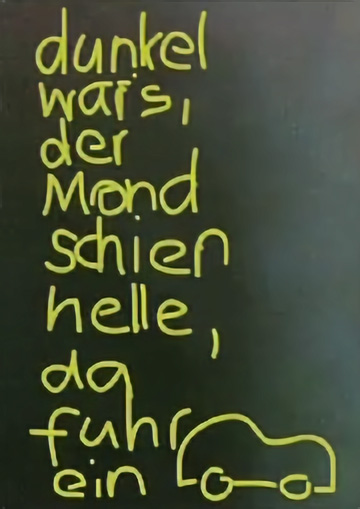 dunkel
war's,
der
Mond
schien
helle,
da
fuhr
ein